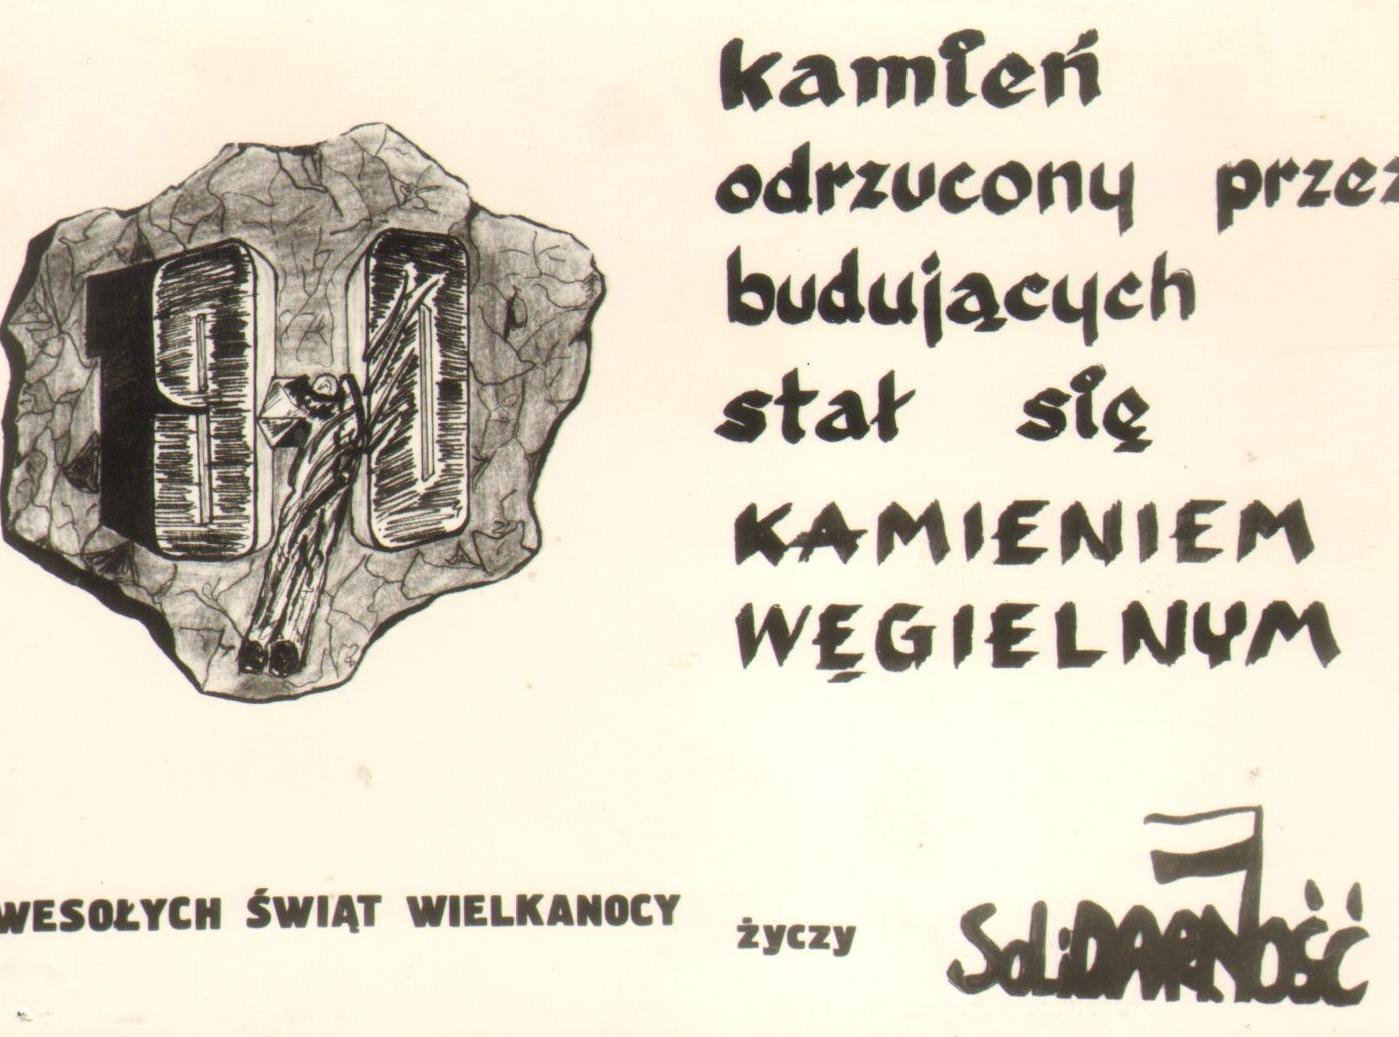 kamień
odrzucony przez
budujących
stał się
KAMIENIEM
WĘGIELNYM
WESOŁYCH ŚWIĄT WIELKANOCY
życzy
SoliDARNość